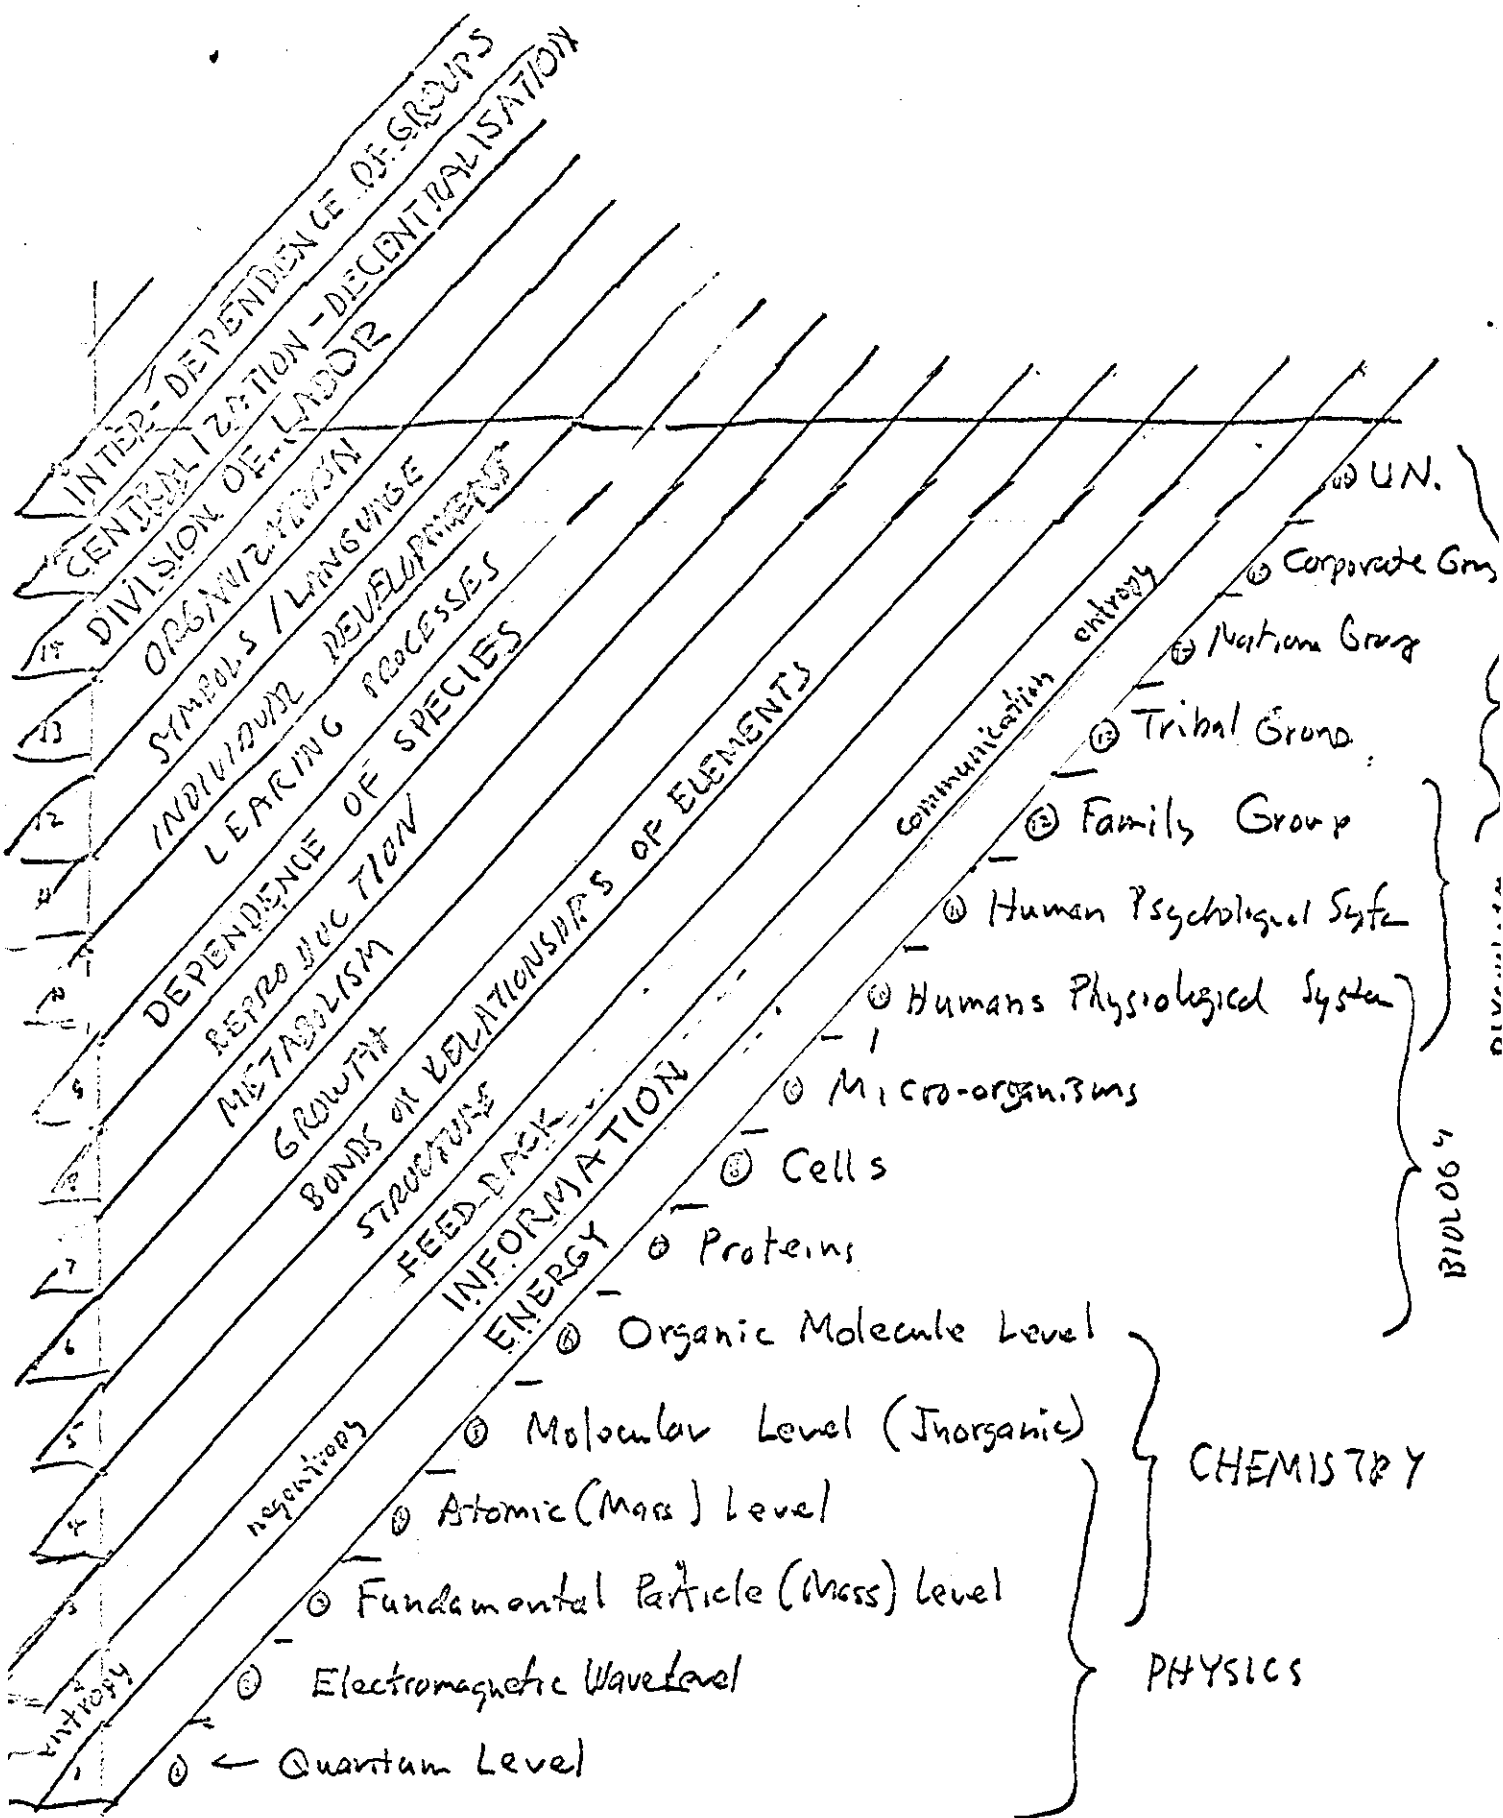 INTER-DEPENDENCE OF GROUPS
CENTRALIZATION-DECENTRALISATION
DIVISION OF LABOR
ORGANIZATION
SYMBOLS / LANGUAGE
INDIVIDUAL DEVELOPMENT
LEARING PROCESSES
DEPENDENCE OF SPECIES
REPRODUCTION
METABOLISM
GROWTH
BONDS OR RELATIONSHIPS OF ELEMENTS
STRUCTURE
FEED-BACK
INFORMATION
ENERGY
communication entropy
negentropy
entropy
U.N.
Corporate
Nation Group
Tribal Group
12 Family Group
Human Psychological
Humans Physiological System
Micro-organisms
8 Cells
Proteins
Organic Molecule Level
Molecular Level (Inorganic)
Atomic (Mass) Level
Fundamental Particle (Mass) Level
Electromagnetic Wave Level
← Quantum Level
BIOLOGY
CHEMISTRY
PHYSICS
13
12
8
7
6
5
4
3
2
1